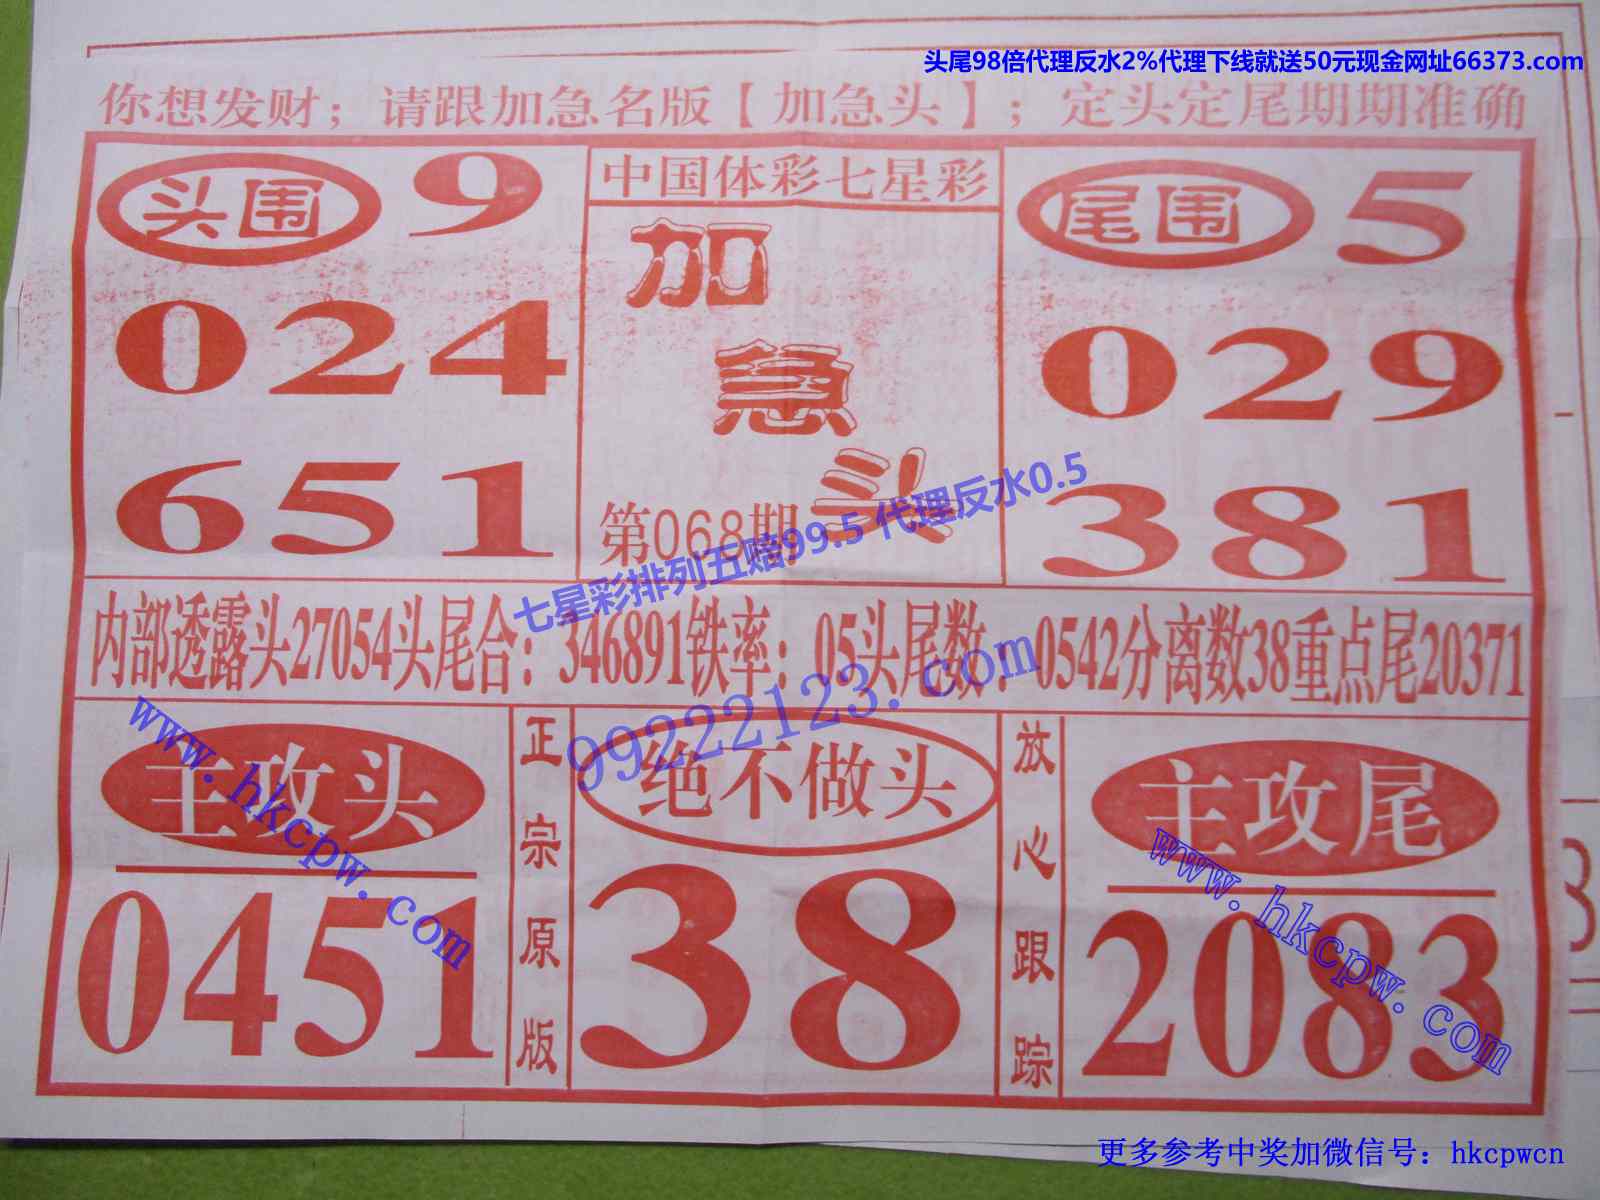 头尾98倍代理反水2%代理下线就送50元现金网址66373.com
你想发财；请跟加急名版【加急头】；定头定尾期期准确
头围 9
024
651
中国体彩七星彩
加
急
头
第068期
尾围 5
029
381
七星彩排列五赔99.5 代理反水0.5
内部透露头27054头尾合：346891铁率：05头尾数：0542分离数38重点尾20371
99222123.com
主攻头
0451
www.hkcpw.com
正宗原版
绝不做头
38
放心跟踪
主攻尾
2083
www.hkcpw.com
更多参考中奖加微信号：hkcpwcn